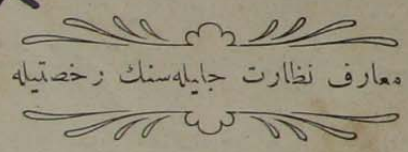 معارف نظارت جليله‌سنك رخصتيله